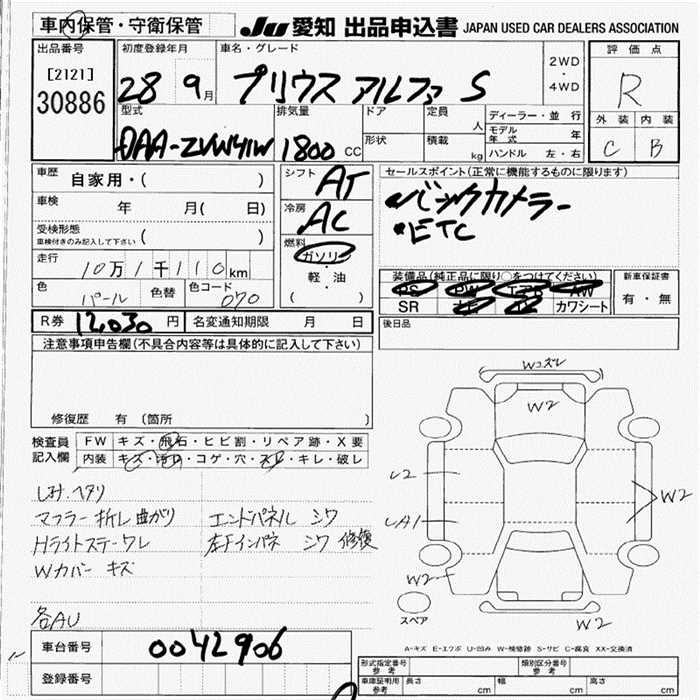 車内保管・守衛保管
JU 愛知 出品申込書 JAPAN USED CAR DEALERS ASSOCIATION
出品番号
[2121]
30886
初度登録年月
28 9月
車名・グレード
プリウス アルファ S
2WD
・
4WD
評価点
R
外装 内装
C B
型式
DAA-ZVW41W
排気量
1800 CC
ドア
形状
定員 人
積載 kg
ディーラー・並行
モデル年式 年
ハンドル 左・右
車歴 自家用・( )
車検 年 月( 日)
受検形態
車検付きのみ記入して下さい ( )
走行 10万1千110km
色 パール 色替 色コード 070
シフト AT
冷房 AC
燃料
ガソリン
・
軽・油
( )
セールスポイント(正常に機能するものに限ります)
・バックカメラー
・ETC
装備品(純正品に限り○をつけてください)
PS PW エアB AW
SR ナビ TV カワシート
新車保証書
有・無
R券 12,030円 名変通知期限 月 日
後日品
注意事項申告欄(不具合内容等は具体的に記入して下さい)
修復歴 有 〔箇所 〕
検査員
記入欄
FW キズ・飛石・ヒビ割・リペア跡・X要
内装 キズ・汚れ・コゲ・穴・スレ・キレ・破レ
マフラー折レ曲がり エンドパネル シワ
Hライトステーワレ 左Fインパネ シワ 修復
Wカバー キズ
各AU
Wコズレ
W2
W2
W2
W2
W2
スペア
A-キズ E-エクボ U-凹み W-補修跡 S-サビ C-腐食 XX-交換済
車台番号 0042906
登録番号
形式指定番号
参考
類別区分番号
参考
車庫証明用
参考
長さ cm 幅 cm 高さ cm